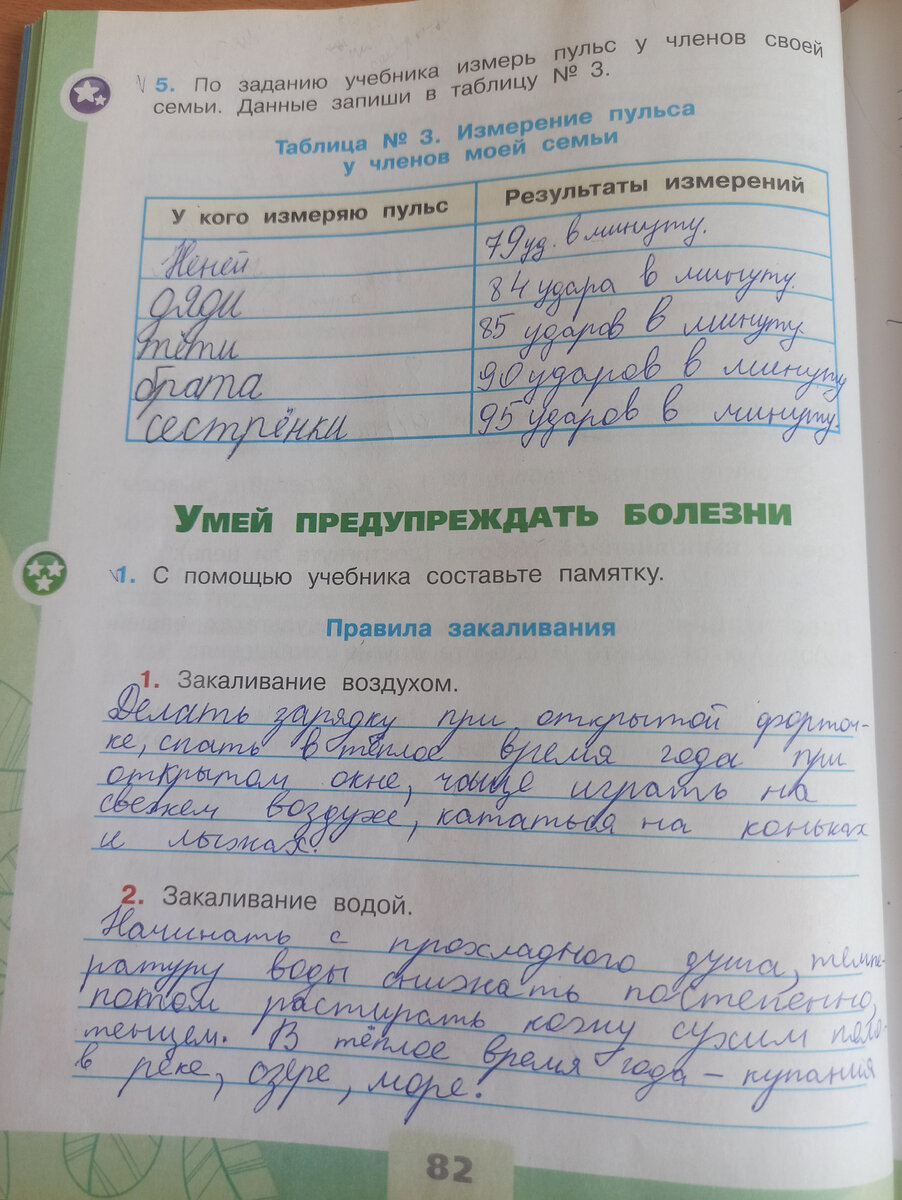 √ 5. По заданию учебника измерь пульс у членов своей
семьи. Данные запиши в таблицу № 3.
Таблица № 3. Измерение пульса
у членов моей семьи
У кого измеряю пульс Результаты измерений
Неней 79 уд. в минуту.
дяди 84 удара в минуту.
тёти 85 ударов в минуту
брата 90 ударов в минуту
сестрёнки 95 ударов в минуту.
Умей предупреждать болезни
√ 1. С помощью учебника составьте памятку.
Правила закаливания
1. Закаливание воздухом.
Делать зарядку при открытой форточ-
ке, спать в тёплое время года при
открытом окне, чаще играть на
свежем воздухе, кататься на коньках
и лыжах.
2. Закаливание водой.
Начинать с прохладного душа, темпе-
ратуру воды снижать постепенно,
потом растирать кожу сухим поло-
тенцем. В тёплое время года – купания
в реке, озере, море.
82